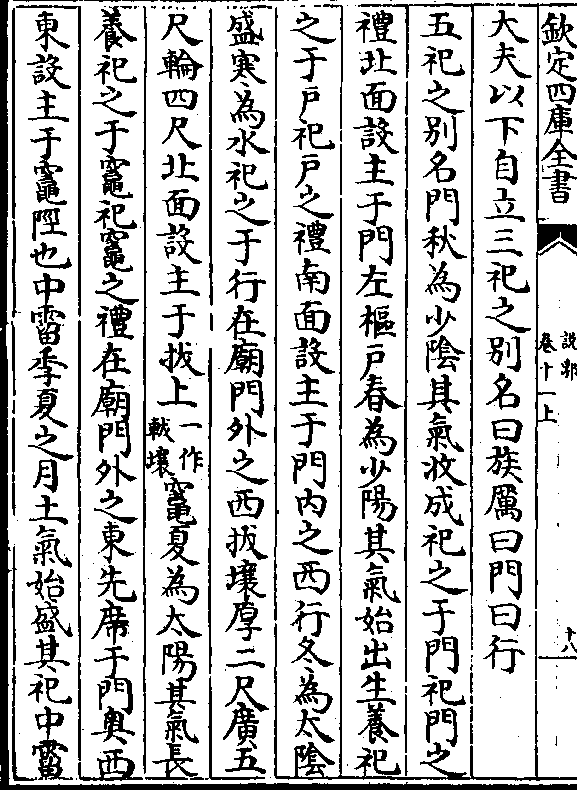 欽定四庫全書
說郛
卷十一上
十八
大夫以下自立三祀之别名曰族厲曰門曰行
五祀之别名門秋為少陰其氣收成祀之于門祀門之
禮北面設主于門左樞戸春為少陽其氣始出生養祀
之于戸祀戸之禮南面設主于門内之西行冬為太陰
盛寒為水祀之于行在廟門外之西拔壤厚二尺廣五
尺輪四尺北面設主于拔上一作軷壤竈夏為太陽其氣長
養祀之于竈祀竈之禮在廟門外之東先席于門奥西
東設主于竈陘也中霤季夏之月土氣始盛其祀中霤